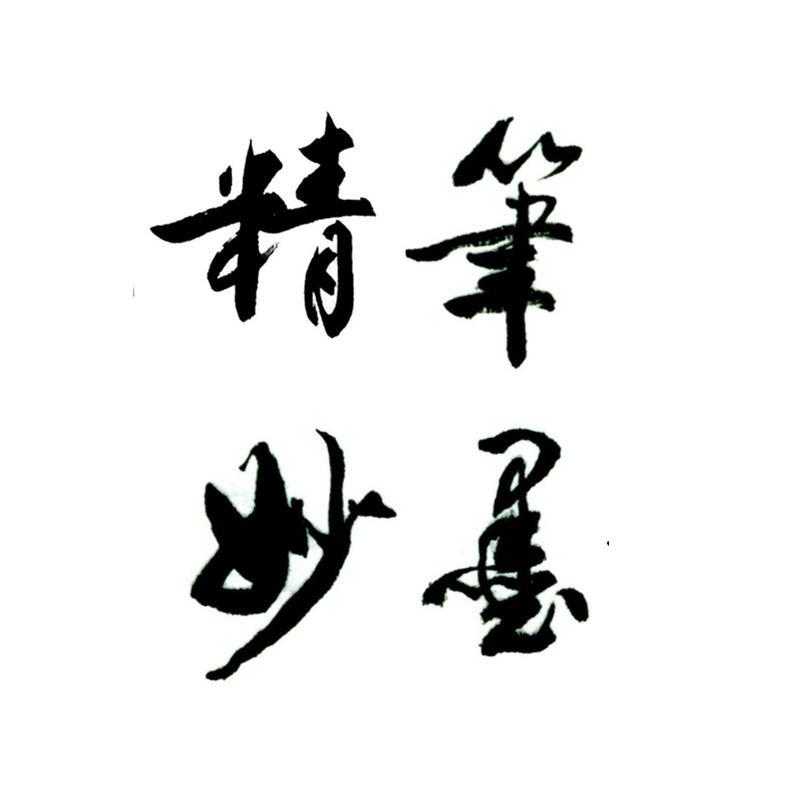 筆墨
精妙